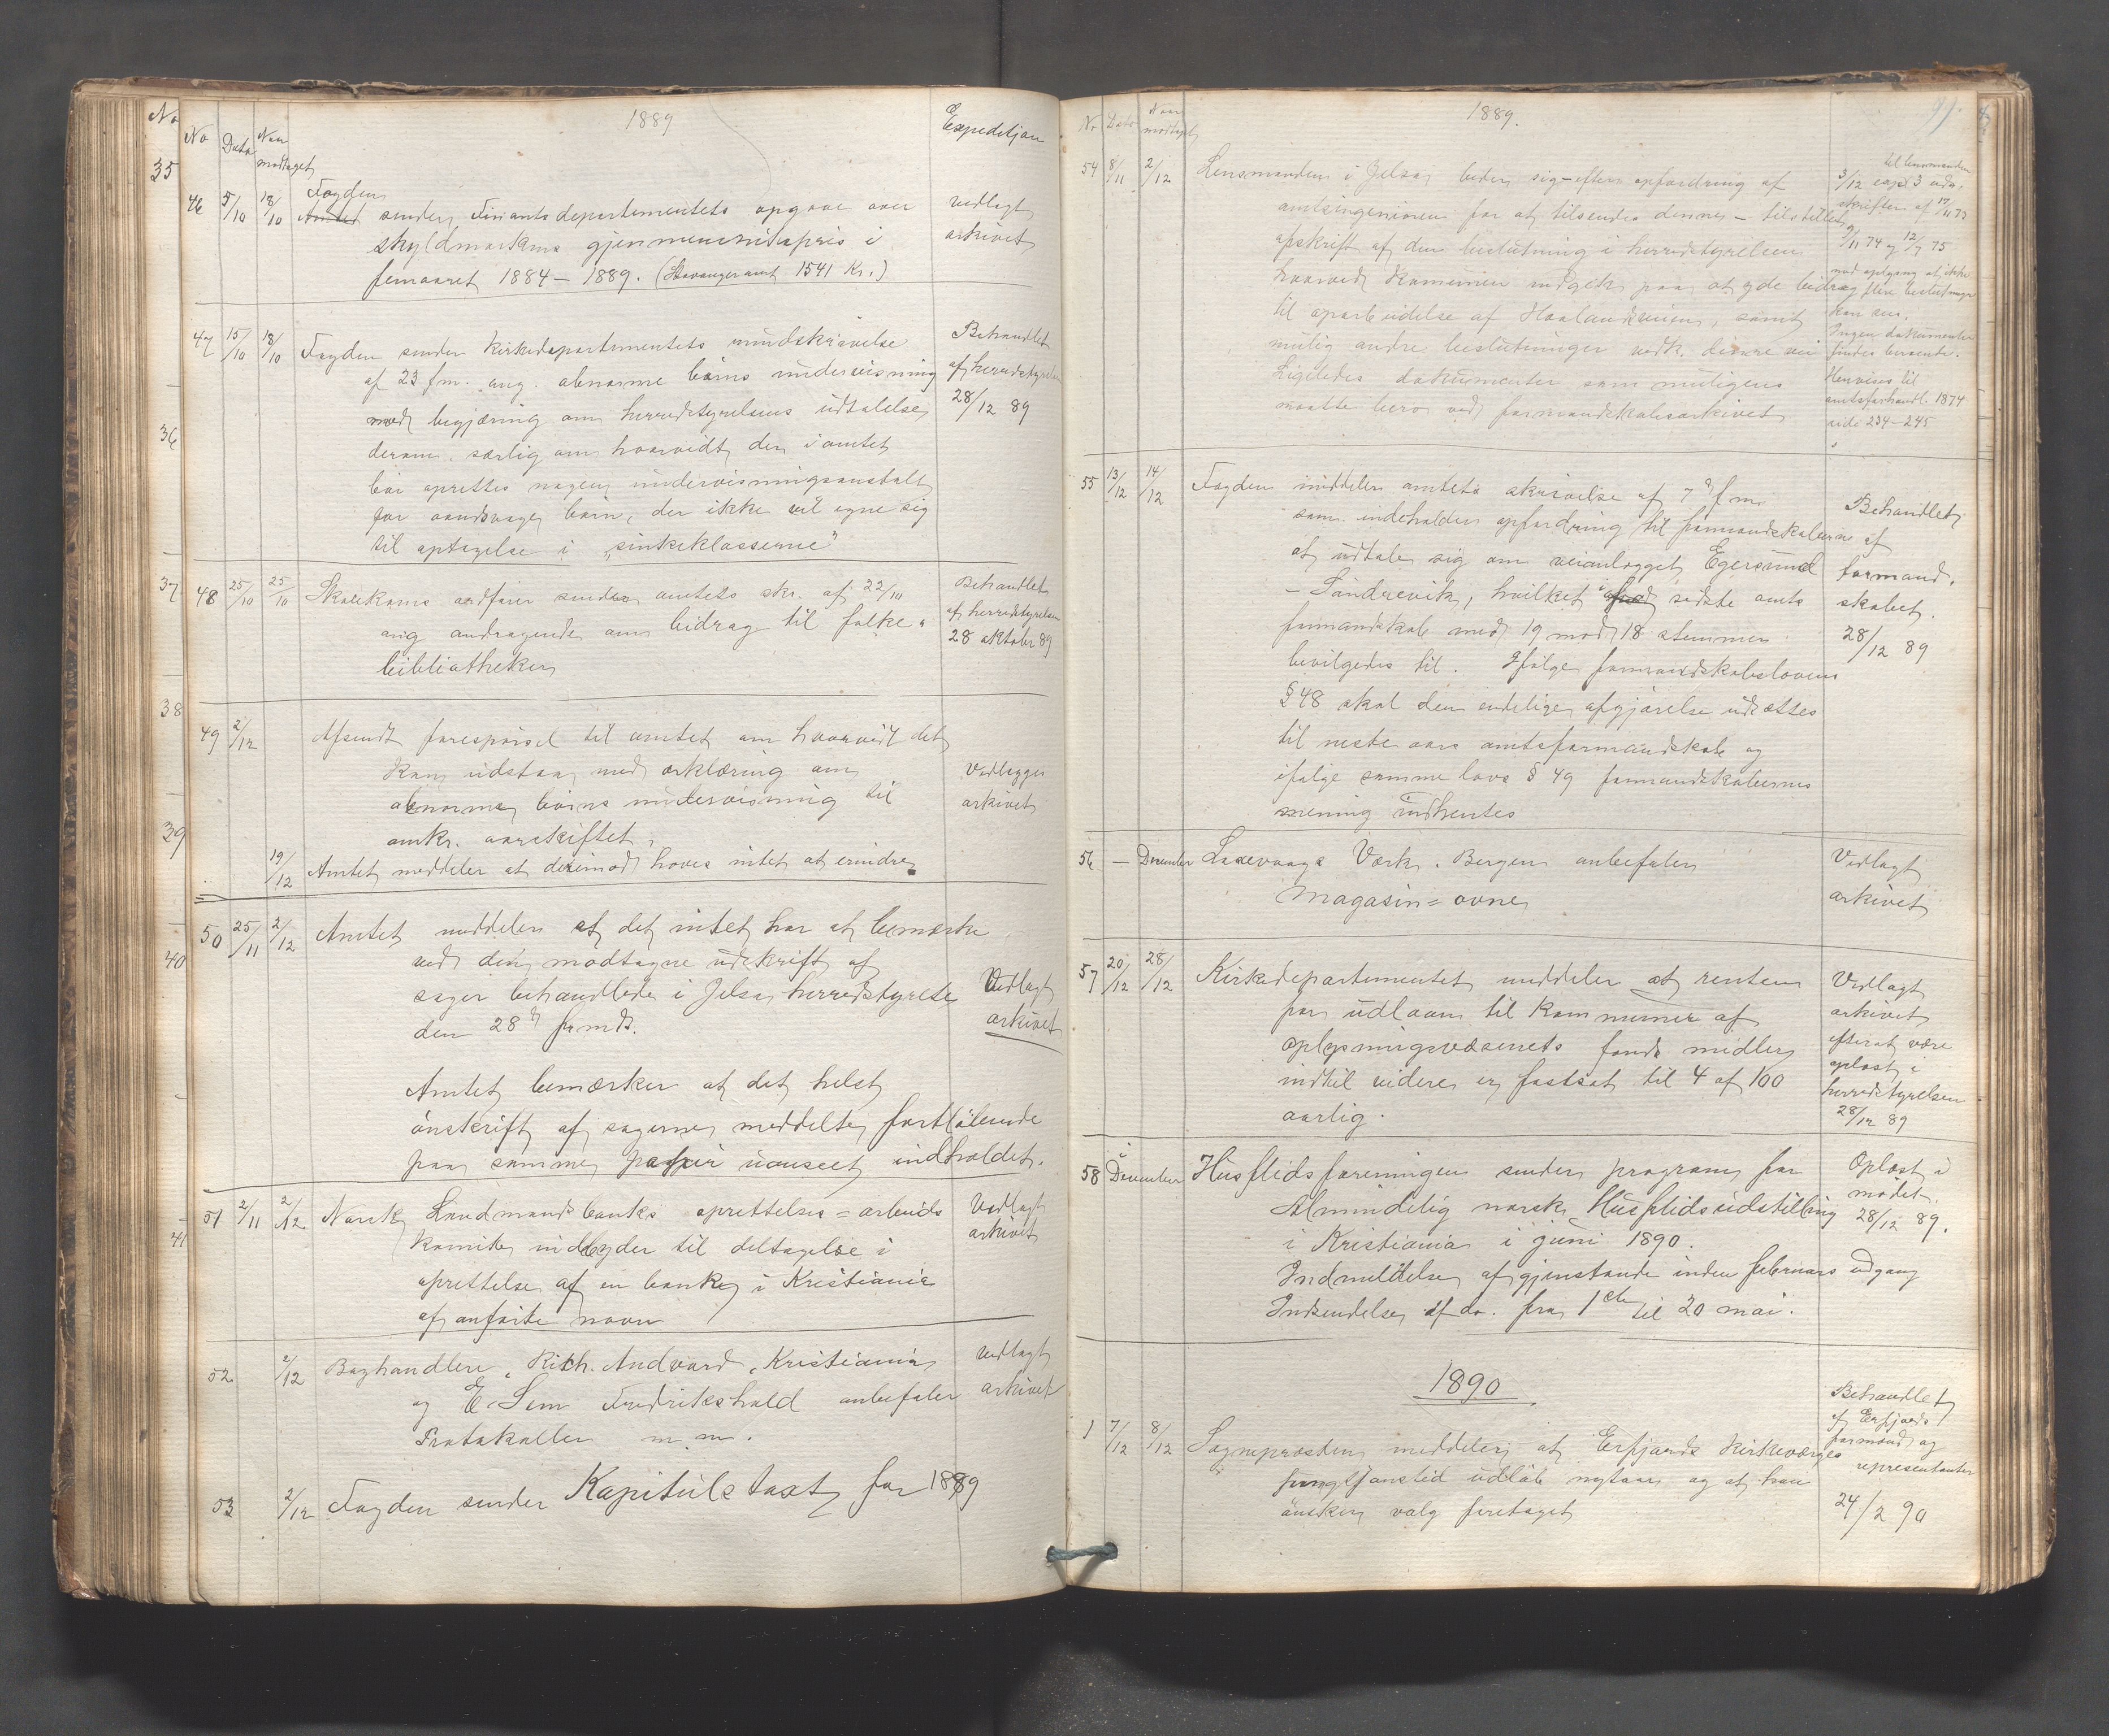 No
35
36
37
38
39
40
41
1889
No Dato Naar modtaget Expedition
46 5/10 18/10 Fogden
Amtet sender Finantsdepartementets opgave over
skyldmarkens gjennemsnitspris i
femaaret 1884 – 1889. (Stavanger amt 1541 Kr.)
vedlagt
arkivet
47 15/10 18/10 Fogden sender Kirkedepartementets rundskrivelse
af 23 f.m. ang. abnorme børns undervisning
med begjæring om herredstyrelsens udtalelse
derom, særlig om hvorvidt der i amtet
bør oprettes nogen undervisningsanstalt
for aandsvage børn, der ikke vil egne sig
til optagelse i "sinkeklasserne"
Behandlet
af herredstyrelsen
28/12 89
48 25/10 25/10 Skolekoms ordfører sender amtets skr. af 22/10
ang andragende om bidrag til folke-
bibliotheker
Behandlet
af herredstyrelsen
28 oktober 89
49 2/12 Afsendt forespørsel til amtet om hvorvidt det
kan udstaa med erklæring om
abnorme børns undervisning til
omkr. aarskiftet.
19/12 Amtet meddeler at derimod haves intet at erindre
Vedlægges
arkivet
50 25/11 2/12 Amtet meddeler at det intet har at bemærke
ved den modtagne udskrift af
sager behandlede i Jelsa herredstyrelse
den 28de f.md.
Amtet bemærker at det helst
ønsker udskrift af sagerne meddelte fortløbende
paa samme papir uanseet indholdet.
Vedlagt
arkivet
51 2/11 2/12 Norsk Landmandsbanks oprettelses=arbeids
komite indbyder til deltagelse i
oprettelse af en bank i Kristiania
af anførte navn
Vedlagt
arkivet
52 2/12 Boghandlere, Rich. Andvord, Kristiania
og E. Sem Fredrikshald anbefaler
Protokoller m.m.
vedlagt
arkivet
53 2/12 Fogden sender Kapitulstaxt for 1889
1889.
No Dato Naar modtaget
54 8/11 2/12 Lensmanden i Jelsa beder sig – efter opfordring af
amtsingeniøren for at tilsendes denne – tilstillet
afskrift af den beslutning i herredstyrelsen
hvorved Kommunen indgik paa at yde bidrag
til oparbeidelse af Haalandsveien, samt
mulig andre beslutninger vedk. denne vei
Ligeledes dokumenter som muligens
maatte bero ved formandskabsarkivet
til lensmanden
3/12 exp. 3 ud-
skrifter af
9/11 74 og 12/7 75
med oplysning at ikke
flere beslutninger
kan sees.
Ingen dokumenter
findes beroende.
Henvises til
amtsforhandl. 1874
side 234–245
55 13/12 14/12 Fogden meddeler amtets skrivelse af 7de f.m.
som indeholder opfordring til formandskaberne
at udtale sig om veianlægget Egersund
– Sandrevik, hvilket i sidste amts
formandskab med 19 mod 18 stemmer
bevilgedes til. Ifølge formandskabslovens
§ 48 skal den endelige afgjørelse udsættes
til neste aars amtsformandskab og
ifølge samme lovs § 49 formandskabernes
mening indhentes
Behandlet
af
formand-
skabet.
28/12 89
56 – December Laxevaags Værk, Bergen anbefaler
Magasin=ovne
Vedlagt
arkivet
57 20/12 28/12 Kirkedepartementet meddeler at renten
for udlaan til kommuner af
oplysningsvæsenets fonds midler
indtil videre er fastsat til 4 af 100
aarlig.
Vedlagt
arkivet
efter at være
oplæst i
herredstyrelsen
28/12 89
58 December Husflidsforeningen sender program for
Almindelig norsk Husflidsudstilling
i Kristiania i juni 1890.
Indmeldelse af gjenstande inden februars udgang
Indsendelse af do. fra 1ste til 20 mai.
Oplæst i
mødet
28/12 89.
1890
1 7/12 8/12 Sognepræsten meddeler at Erfjords kirkeværges
funktjonstid udløb nytaar og at han
ønsker valg foretaget
Behandlet
af Erfjords
formænd og
representanter
24/2 90